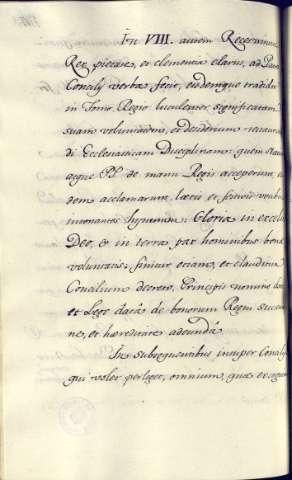 In VIII. autem Recesvinus
Rex pietate, et clementia clarus, ad Patres
Concilij verba fecit, eisdemque tradidit
in Tomo Regio luculenter significatam
suam voluntatem, et desiderium restauran
di Ecclesiasticam Disciplinam: quem statim
atque PP. de manu Regis acceperunt, ei
dem acclamarunt, laetis et festivis vocibus
intonantes hymnum: Gloria in excelsis
Deo, & in terra pax hominibus bonae
voluntatis: finitur etiam, et clauditur
Concilium decreto, Principis nomine
et Lege data de bonorum Regni
ne, et haereditate adeunda.
In subsequentibus insuper Concilijs
qui volet perleget, omnium, quae